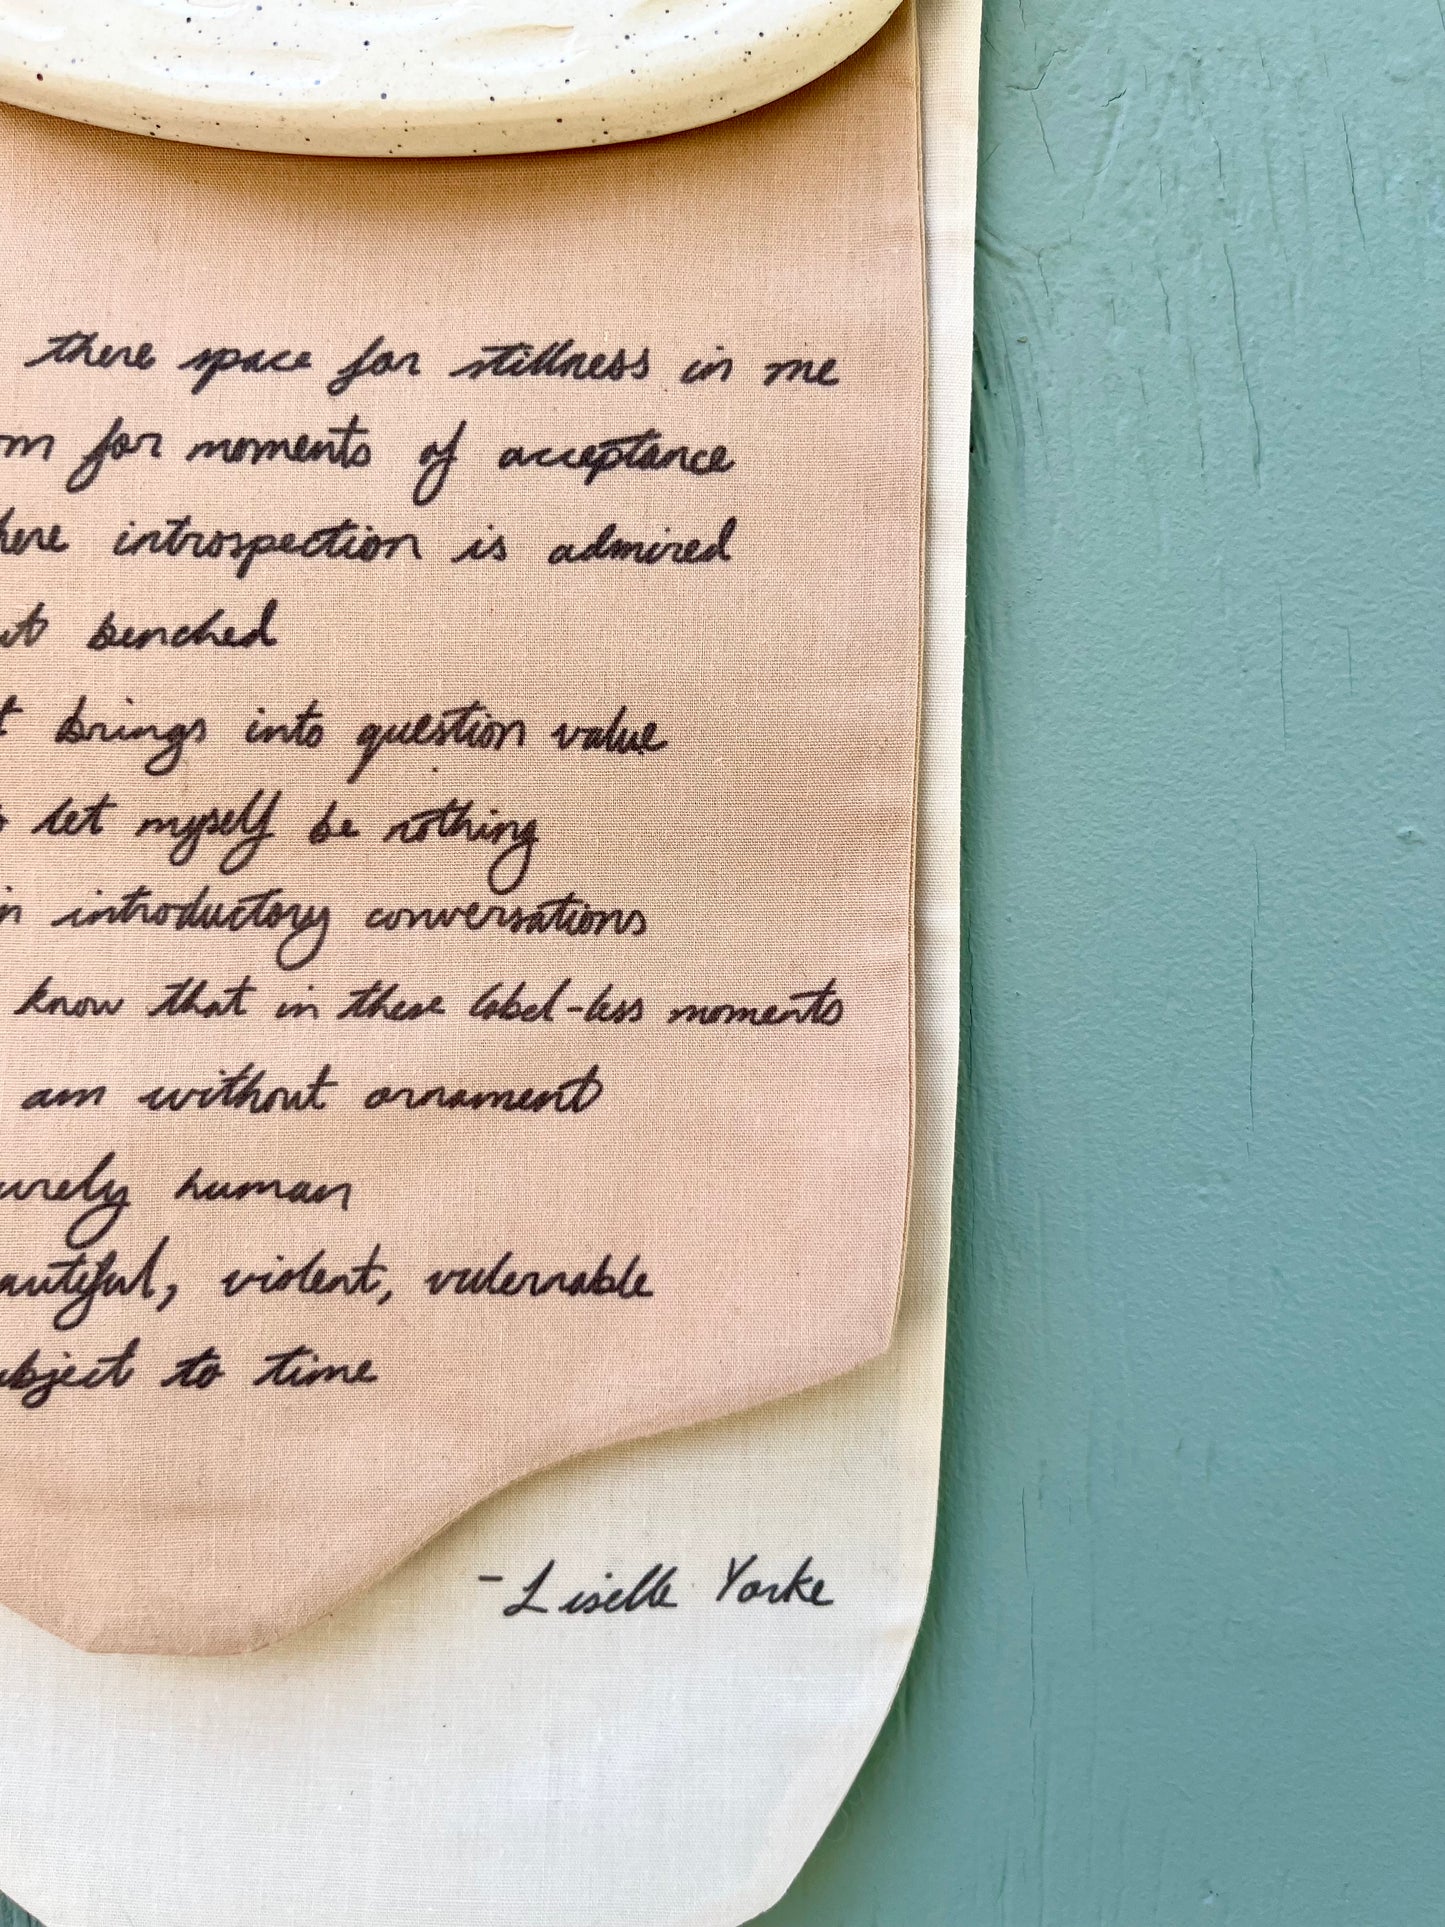 there space for stillness in me
for moments of acceptance
introspection is admired
benched
brings into question value
let myself be nothing
introductory conversations
know that in these label-less moments
am without ornament
human
violent, vulernable
to time
- Liselle Yorke